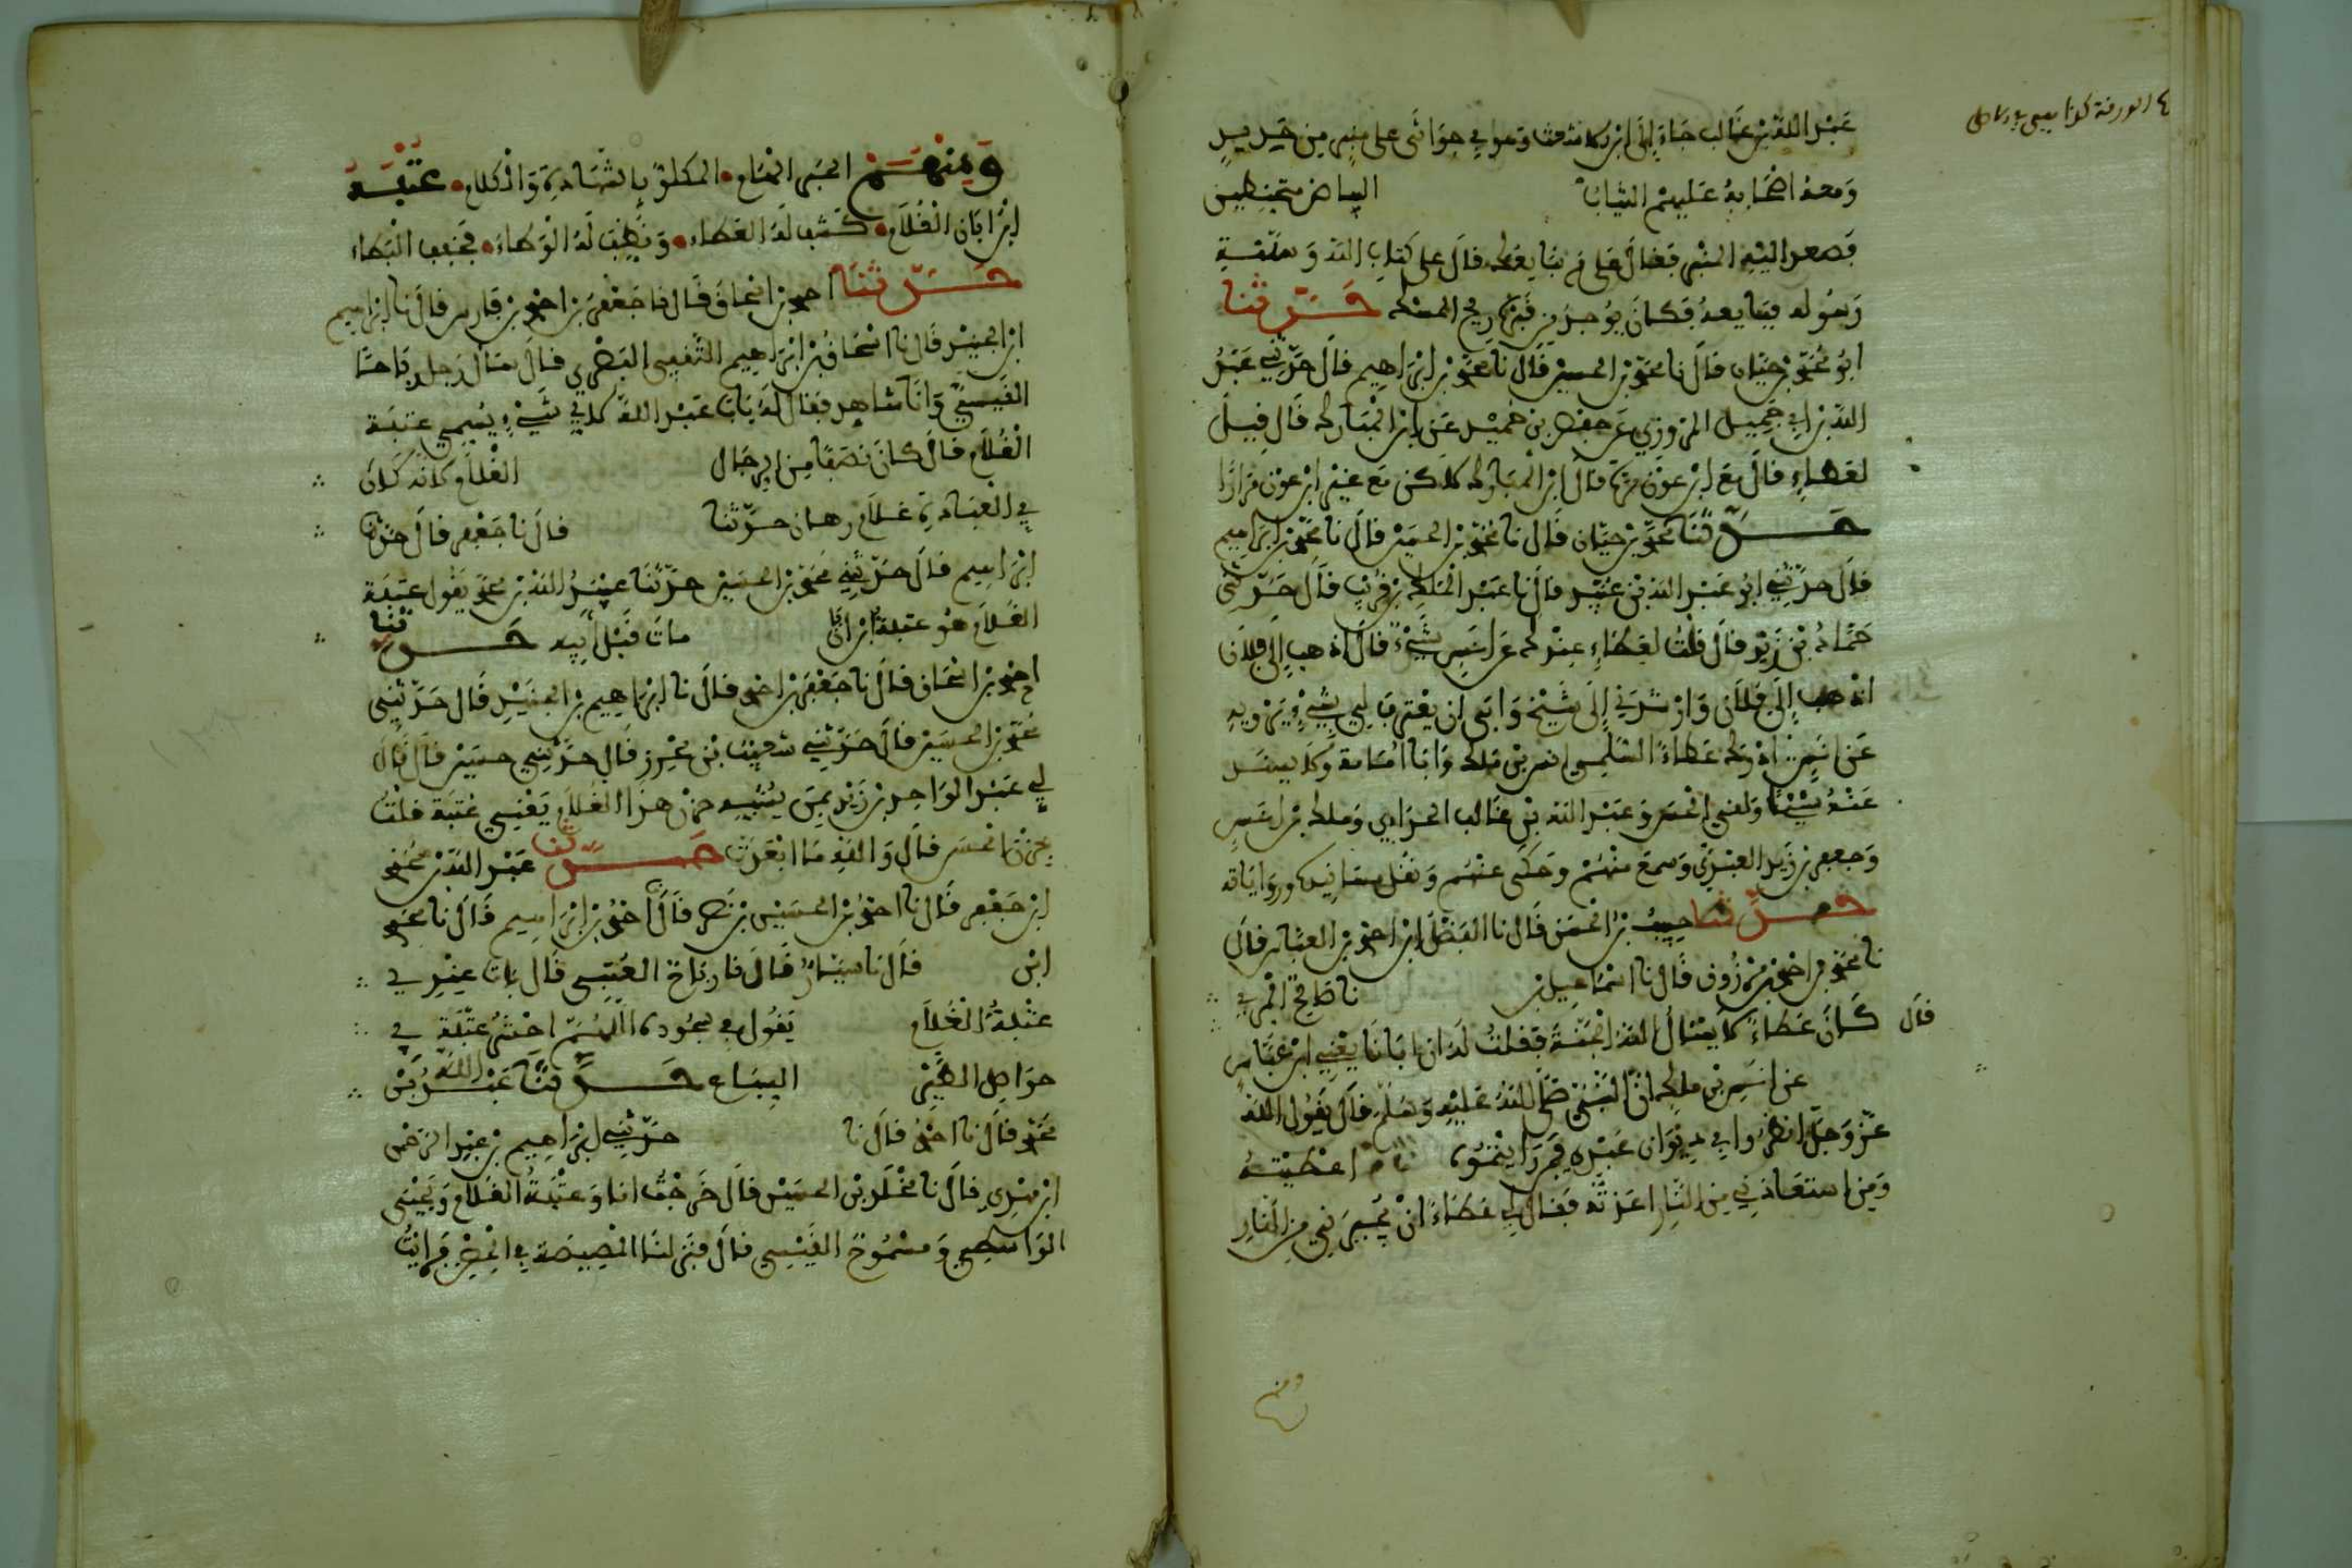 عبد الله بن غالب جاء إلى ابن الاشعث وهو في جواثى على منبر من حديد
ومعه اصحابه عليهم الثياب البياض متحنطين
فصعد اليه المنبر فقال على م نبايعك قال على كتاب الله وسنة
رسوله فبايعه فكان يوجد من قبره ريح المسك حدثنا
ابو محمد بن حيان قال نا محمد بن الحسين قال نا محمد بن ابراهيم قال حدثني عبد
الله بن ابي جميل المروزي عن جعفر بن حميد عن ابن المبارك قال قيل
لعطاء قال مع ابن عون مرة قال ابن المبارك لاكن مع غير ابن عون مرارا
حدثنا محمد بن حيان قال نا محمد بن الحسين قال نا محمد بن ابراهيم
قال حدثني ابو عبد الله بن عبيد قال نا عبد الملك بن قريب قال حدثني
حماد بن زيد قال قلت لعطاء عندك عن انس شيء قال اذهب إلى فلان
اذهب إلى فلان وارشدني إلى شيخ وابى ان يعترف لي بشيء يرويه
عن انس ادرك عطاء السلمي انس بن ملك وابا امامة ولا يسند
عنه شيئا ولقي الحسن وعبد الله بن غالب الحداني وملك بن
وجعفر بن زيد العبدي وسمع منهم وحكى عنهم ونقل مسانيد ورواياته
حدثنا حبيب بن الحسن قال نا الفضل بن احمد بن العباس قال
نا محمد بن احمد بن مرزوق قال نا اسماعيل بن نا صالح المري
قال كان عطاء لا يسئل الله الجنة فقلت له ان ابانا يعني ابن عياش
عن انس بن ملك ان النبي صلى الله عليه وسلم قال يقول الله
عز وجل انظروا في ديوان عبدي فمن رايتموه اعطيته
ومن استعاذني من النار اعذته فقال لي عطاء ان يجيرني من النار
ومنهم
ومنهم الحبر المكلو بالشهادة والكلام عتبة
ابن ابان الغلام كشف له الغطاء ونظف له الوطاء فخفف البكاء
حدثنا احمد بن اسحاق قال نا جعفر بن احمد بن فارس قال نا ابراهيم
ابن الجنيد قال نا اسحاق بن ابراهيم الثقفي البصري قال سال رجل رباحا
القيسي وانا شاهد فقال له يابا عبد الله لاي شيء يسمى عتبة
الغلام قال كان نصفا من الرجال الغلام لانه كان
في العبادة غلام رهان حدثنا قال نا جعفر قال حدثنا
ابراهيم قال حدثني محمد بن الحسين حدثنا عبيد الله بن محمد يقول عتبة
الغلام هو عتبة بن ابان مات قبل ابيه حدثنا
احمد بن اسحاق قال نا جعفر بن احمد قال نا ابراهيم بن الجنيد قال حدثني
محمد بن الحسين قال حدثني شعيب بن محرز قال حدثني حسين قال قال
لي عبد الواحد بن زيد بمن يشبه حزن هذا الغلام يعني عتبة قلت
بحزن الحسن قال والله ما ابعدت حدثنا عبد الله بن محمد
ابن جعفر قال نا احمد بن الحسين بن نصر قال احمد بن ابراهيم قال نا محمد
ابن قال نا سيار قال نا رباح القيسي قال بات عندي
عتبة الغلام يقول في سجوده اللهم احشر عتبة في
حواصل الطير السباع حدثنا عبد الله بن
محمد قال نا احمد قال نا حدثني ابراهيم بن عبد الرحمن
ابن مهدي قال نا مخلد بن الحسين قال خرجت انا وعتبة الغلام ويحيى
الواسطي ومشموخ القيسي قال فنزلنا المصيصة في الحصن فرايت